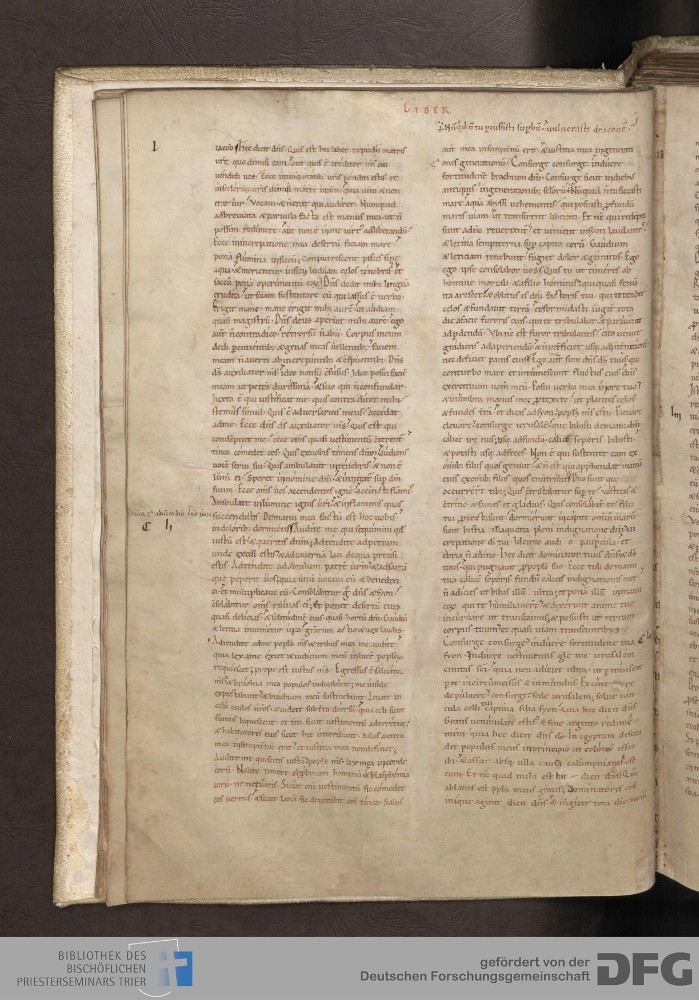 LIBER
Nũqd n̄ tu pcussisti supbũ uulnerasti draconẽ
L
iacob; Hec dicit dñs. Quis est hic liber repudii matris
urẽ. quo dimisi eam. aut quis ẽ creditor ms cui
uendidi uos; Ecce in iniquitatib; uris uenditi estis. et
in sceleribus uris dimisi matrẽ urãm. quia ueni & non
erat uir. Vocaui & ñ erat qui audiret. Nunquid
abbreuiata & paruula facta est manus mea. ut ñ
possim redimere. aut non ẽ in me uirt; ad liberandũ;
Ecce in increpatione mea desertũ faciam mare.
ponã flumina in siccũ. computrescent pisces sine
aqua & morientur in siti; Induam celos tenebris. et
saccũ ponã operimentũ eoꝝ; Dñs dedit michi linguã
eruditã. ut sciam sustentare eũ qui lassus ẽ uerbo.
Erigit mane. mane erigit michi aurẽ ut audiam
quasi magistrũ; Dñs deus aperuit michi aurẽ. ego
aut̃ ñ contradico. retrorsũ ñ abii; Corpus meum
dedi percutientib; & genas meas uellentib;. faciem
meam ñ auerti ab increpantib; & cspuentib;; Dñs
ds auxiliator ms. ideo nonsũ cfusus; Ideo posui faciẽ
meam ut petrã durissimã. & scio qm̃ ñ confundar.
Iuxta ẽ qui iustificat me. quis contra dicet michi.
stemus simul; Quis ẽ aduersarius meus. accedat
ad me. Ecce dñs ds auxiliator ms. quis est qui
condẽpnet me. ecce oms quasi uestimentũ cterent͛
tinea comedet eos; Quis ex uobis timens dñm. audiens
uocẽ serui sui; Quis ambulauit in tenebris & non ẽ
lum̃ ei. Speret in nomine dñi. & innitat͛ sup dm̃
suum; Ecce oms uos accendentes ignẽ. accincti flamis.
Ambulate in lumine ignis uri. & in flammis quas
C h
succendistis; De manu mea factũ est hoc uobis.
in dolorib; dormietis; Audite me qui sequimini qd
iustũ est. & queritis dñm; Adtendite ad petram
unde excisi estis. & ad cauernã laci de qua precisi
estis. Adtendite ad abraham patrẽ urm̃. & ad sarã
que peperit uos. quia unũ uocaui eũ & benedixi
ei. & multiplicaui eũ; Consolabitur g̃ dñs syon.
csolabitur oms ruinas ei; Et ponet desertũ eius
quasi delicias. & solitudinẽ eius quasi hortũ dñi. Gaudiũ
& letitia inuenietur in ea. gr̃arum actio & uox laudis.
Adtendite ad me popl̃s ms & tribus mea me audite.
quia lex a me exiet. & iudicium meũ in lucẽ poploꝝ
requiescet; Prope est iustus ms. Egressus ẽ saluator
ms. & brachia mea populos iudicabunt; me insule
expectabunt & brachium meũ sustinebunt. Leuate in
celũ oculos uros. & uidete sub terra deorsũ. quia celi sicut
fumus liquescent. et t̃ra sicut uestimentũ atteretur.
& habitatores eius sicut hec interibunt. Salus autem
mea in sempiternũ erit. et iustitia mea non deficiet;
Audite me qui scitis iustũ. popl̃s ms. lex mea in corde
eorũ. Nolite timere obprbrium hominũ & blasphemia
eorũ ne metuatis. Sicut eni uestimentũ sic comedet
eos uermis. & sicut lanã sic deuorabit eos tinea. Salus
aut̃ mea in sempiternũ erit. & iustitia mea in gnerati
ones generationũ. Consurge consurge. induere
fortitudinẽ brachium dñi. Consurge sicut in diebus
antiquis. in generationib; seloꝝ; Nunquid ñ tu siccasti
mare. aquã abyssi uehementis. qui posuisti pfundũ
maris uiam. ut transirent liberati. Et nc̃ qui redẽpti
sunt a dño. reuertent͛. et uenient in syon laudantes.
& letitia sempiterna sup capita eorũ. Gaudium
& letitiam tenebunt. fugiet dolor & gemitus. Ego
ego ipse consolabor uos; Quis tu ut timeres ab
homine mortali. & a filio hominis. qui quasi fenũ
ita arescet. & oblitus es dñi factoris tui. qui tetendit
celos & fundauit terrã. & formidasti iugit tota
die a facie furoris eius qui te tribulabat & parauerat
ad pdendũ. Vbi nc̃ est furor tribulantis. cito ueniet
gradiens ad aperiendũ. & ñ interficiet usq; ad internitionẽ
nec deficiet panis eius; Ego aut̃ sum dñs ds tuus qui
conturbo mare. et intumescunt fluctus eius. dñs
exercituum nom̃ meũ. Posui uerba mea in ore tuo.
& in umbra manus meẽ ptexi te. ut plantes celos
& fundes t̃rã. et dicas ad syon. popl̃s ms es tu. Eleuare
eleuare. consurge ierusalẽ. que bibisti de manu dñi
calicẽ irẽ eius. usq; ad fundũ calicis soporis bibisti.
& potasti usq; ad feces. Non ẽ qui sustentet eam ex
omib; filiis quos genuit. & ñ est qui apprehendat manũ
eius ex omib; filiis quos enutriuit; Duo sunt que
occurrerunt tibi. Quis ctristabitur sup te. uastitas &
ctritio & fames et gladius. Quis consolabit͛ te; Filii
tui piecti sunt. dormierunt in capite omiũ uiarũ
sicut bestia illaqueata. pleni indignatione dñi. in
crepatione di tui. Idcirco audi o paupcula. et
ebria ñ a uino. Hec dicit dominator tuus dñs. & ds
tuus. qui pugnauit p poplo suo. Ecce tuli de manu
tua calicẽ soporis. fundũ calicis indignationis meẽ.
ñ adicies ut bibas illũ ultra. et ponã illũ in manu
eoꝝ qui te humiliauer̃. & dixerunt animẽ tuẽ
incuruare ut transeamus. & posuisti ut terram
corpus tuum. et quasi uiam transeuntibus.
Consurge consurge. induere fortitudine tua
syon. Induere uestimentis glẽ tuẽ ierusalem
ciuitas sci. quia non adiciet ultra ut ptranseat
p te incircumcisus & inmundus. Excutere
de puluere. consurge. sede ierusalem. solue uin
cula colli tui captiua filia syon. Quia hec dicit dñs.
Gratis uenundati estis. & sine argento redime
mini. quia hec dicit dñs ds. In egyptum descen
dit populus meus in principio ut colonus esset
ibi. & assur absq; ulla causa calumpniatus est
eum. Et nc̃ quid michi est hic dicit dñs. Qm̃
ablatus est ppls meus gratis. Dominatores eius
inique agunt dicit dñs. & iugiter tota die nom̃
BIBLIOTHEK DES
BISCHÖFLICHEN
PRIESTERSEMINARS TRIER
gefördert von der
Deutschen Forschungsgemeinschaft
DFG